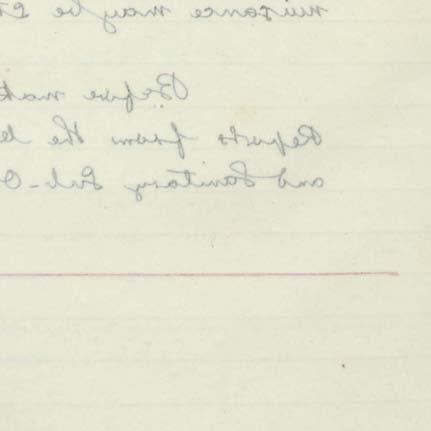 nuisance may be
Before
Reports from the
and Sanitary Sub-O